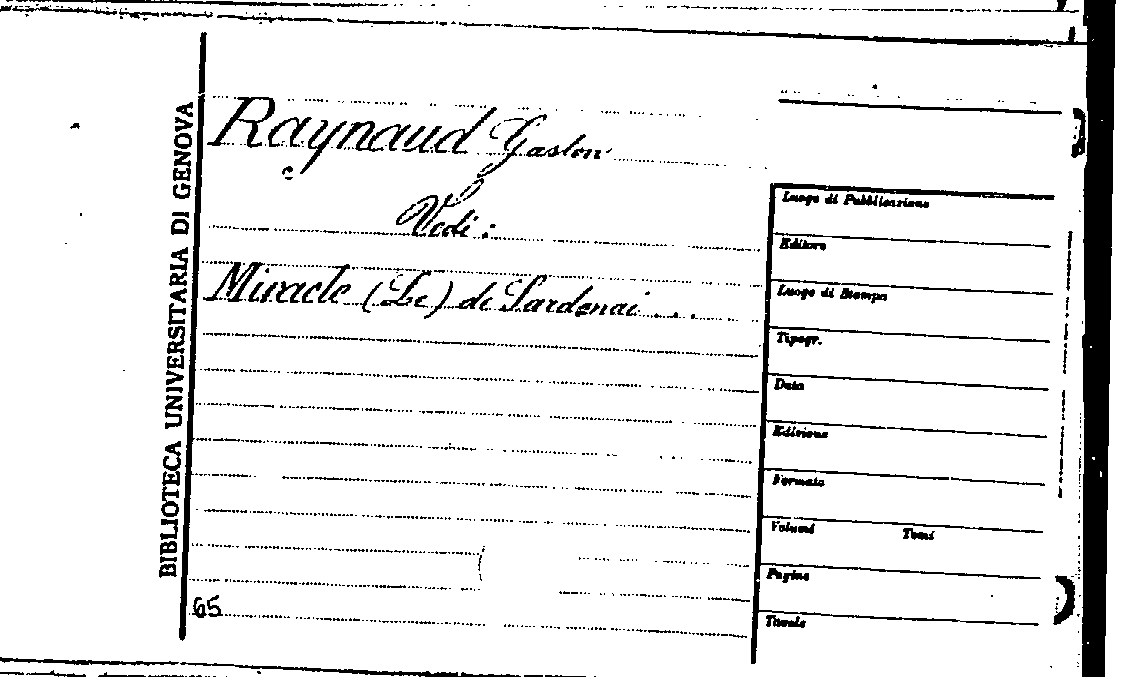 BIBLIOTECA UNIVERSITARIA DI GENOVA
Raynaud Gaston
Vedi:
Miracle (Le) de Sardenai...
65
Luogo di Pubblicazione
Editore
Luogo di Stampa
Tipogr.
Data
Edizione
Formato
Volumi Tomi
Pagine
Titvole